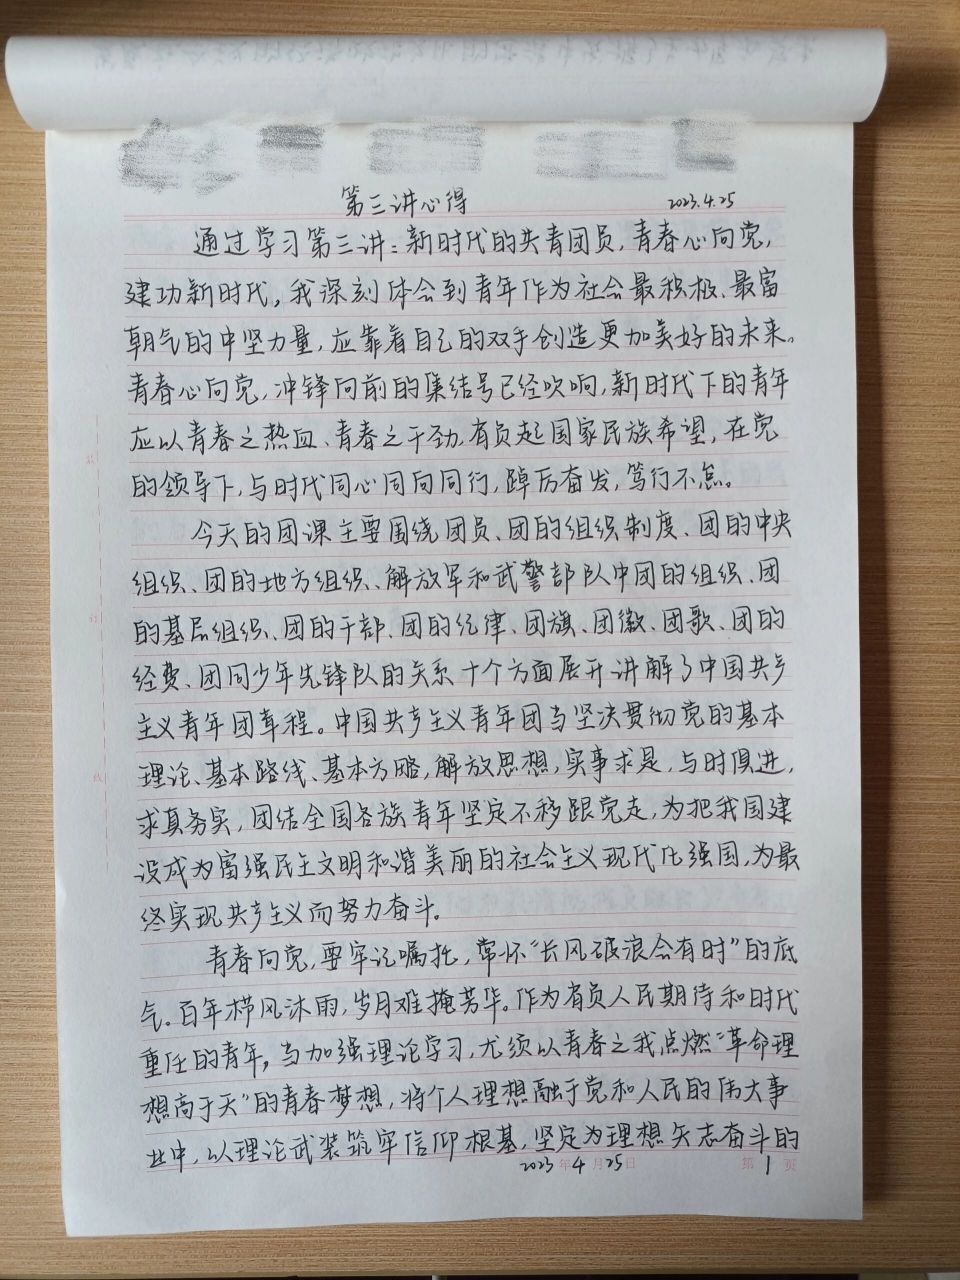 第三讲心得
2023.4.25
通过学习第三讲：新时代的共青团员，青春心向党，
建功新时代，我深刻体会到青年作为社会最积极、最富
朝气的中坚力量，应靠着自己的双手创造更加美好的未来。
青春心向党，冲锋向前的集结号已经吹响，新时代下的青年
应以青春之热血、青春之干劲，肩负起国家民族希望，在党
的领导下，与时代同心同向同行，踔厉奋发，笃行不怠。
今天的团课主要围绕团员、团的组织制度、团的中央
组织、团的地方组织、解放军和武警部队中团的组织、团
的基层组织、团的干部、团的纪律、团旗、团徽、团歌、团的
经费、团同少年先锋队的关系十个方面展开讲解了中国共产
主义青年团章程。中国共产主义青年团当坚决贯彻党的基本
理论、基本路线、基本方略，解放思想，实事求是，与时俱进，
求真务实，团结全国各族青年坚定不移跟党走，为把我国建
设成为富强民主文明和谐美丽的社会主义现代化强国，为最
终实现共产主义而努力奋斗。
青春向党，要牢记嘱托，常怀“长风破浪会有时”的底
气。百年栉风沐雨，岁月难掩芳华。作为肩负人民期待和时代
重任的青年，当加强理论学习，尤须以青春之我点燃“革命理
想高于天”的青春梦想，将个人理想融于党和人民的伟大事
业中，以理论武装筑牢信仰根基，坚定为理想矢志奋斗的
2023年4月25日 第1页
装
订
线